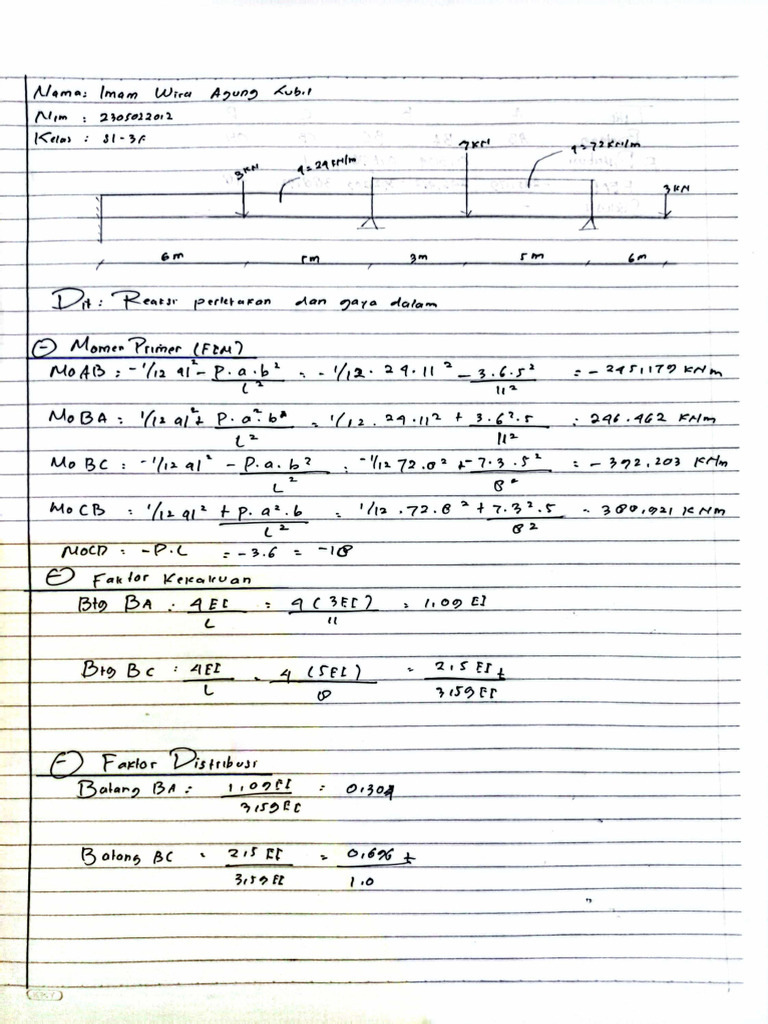 Nama: Imam Wira Agung Lubis
Nim : 2305022012
Kelas : SI-3F
3 KN q=24KN/m 7KN q=72KN/m 3KN
6m 5m 3m 5m 6m
Dit: Reaksi perletakan dan gaya dalam
Momen Primer (FEM)
MoAB : -1/12 ql² - P.a.b²/L² = -1/12 . 24.11² - 3.6.5²/11² = -245,179 KNm
MoBA : 1/12 ql² + P.a².b²/L² = 1/12 . 24.11² + 3.6².5/11² : 246.462 KNm
MoBC : -1/12 ql² - P.a.b²/L² = -1/12 72.8² + -7.3.5²/8² = -392,203 KNm
MoCB : 1/12 ql² + P.a².b/L² = 1/12 .72.8² + 7.3².5/82 = 388,921 KNm
MoCD = -P.L = -3.6 = -18
Faktor Kekakuan
Btg BA : 4EI/L = 4(3EI)/11 = 1,09 EI
Btg BC : 4EI/L = 4(5EI)/8 = 2,5 EI +
3,59 EI
Faktor Distribusi
Batang BA : 1,09EI/3,59EI = 0,304
Batang BC = 2,5 EI/3,59EI = 0,696 +
1.0
KKY